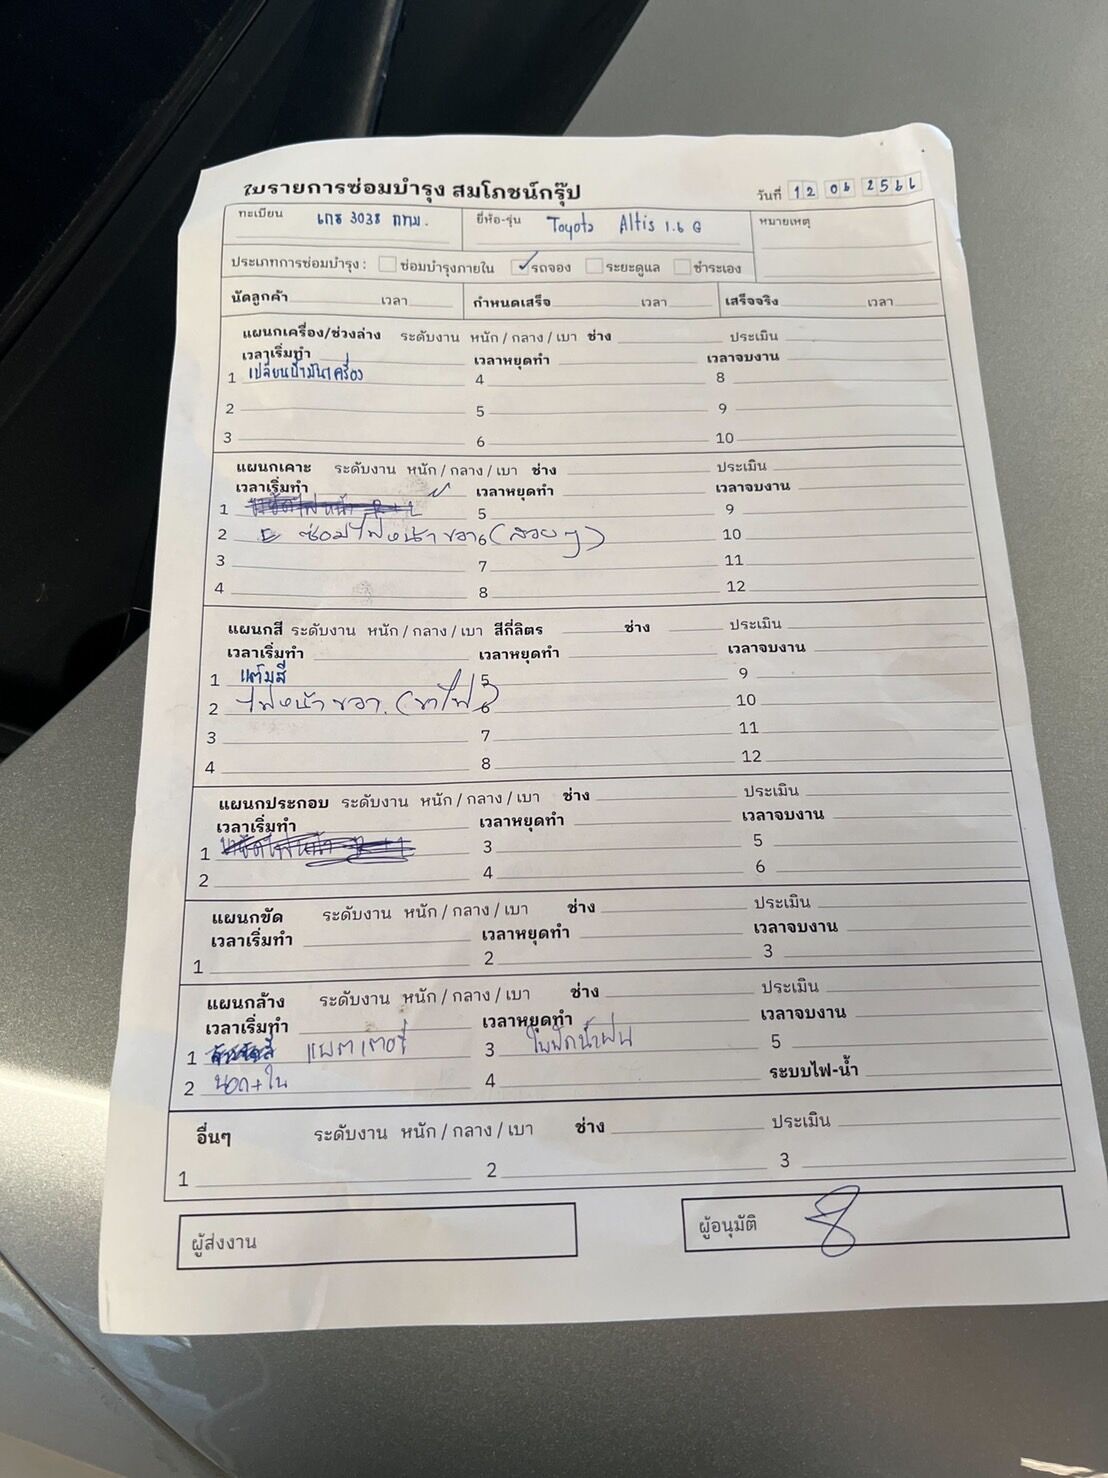 ใบรายการซ่อมบำรุง สมโภชน์กรุ๊ป
วันที่ 12 06 2566
ทะเบียน 3038 กทม. ยี่ห้อ-รุ่น Toyota Altis 1.6 G หมายเหตุ
ประเภทการซ่อมบำรุง : ซ่อมบำรุงภายใน ✓ รถจอง ระยะดูแล ชำระเอง
นัดลูกค้า เวลา กำหนดเสร็จ เวลา เสร็จจริง เวลา
แผนกเครื่อง/ช่วงล่าง ระดับงาน หนัก / กลาง / เบา ช่าง ประเมิน
เวลาเริ่มทำ เวลาหยุดทำ เวลาจบงาน
1 เปลี่ยนน้ำมันเครื่อง 4 8
2 5 9
3 6 10
แผนกเคาะ ระดับงาน หนัก / กลาง / เบา ช่าง ประเมิน
เวลาเริ่มทำ เวลาหยุดทำ เวลาจบงาน
1 5 9
2 ซ่อมไฟหน้าขวา 6 (สวยๆ) 10
3 7 11
4 8 12
แผนกสี ระดับงาน หนัก / กลาง / เบา สีกี่ลิตร ช่าง ประเมิน
เวลาเริ่มทำ เวลาหยุดทำ เวลาจบงาน
1 แต้มสี 5 9
2 ไฟหน้าขวา. (ขาไฟ) 6 10
3 7 11
4 8 12
แผนกประกอบ ระดับงาน หนัก / กลาง / เบา ช่าง ประเมิน
เวลาเริ่มทำ เวลาหยุดทำ เวลาจบงาน
1 3 5
2 4 6
แผนกขัด ระดับงาน หนัก / กลาง / เบา ช่าง ประเมิน
เวลาเริ่มทำ เวลาหยุดทำ เวลาจบงาน
1 2 3
แผนกล้าง ระดับงาน หนัก / กลาง / เบา ช่าง ประเมิน
เวลาเริ่มทำ เวลาหยุดทำ เวลาจบงาน
1 แบตเตอรี่ 3 ใบปัดน้ำฝน 5
2 นอก+ใน 4 ระบบไฟ-น้ำ
อื่นๆ ระดับงาน หนัก / กลาง / เบา ช่าง ประเมิน
1 2 3
ผู้ส่งงาน ผู้อนุมัติ